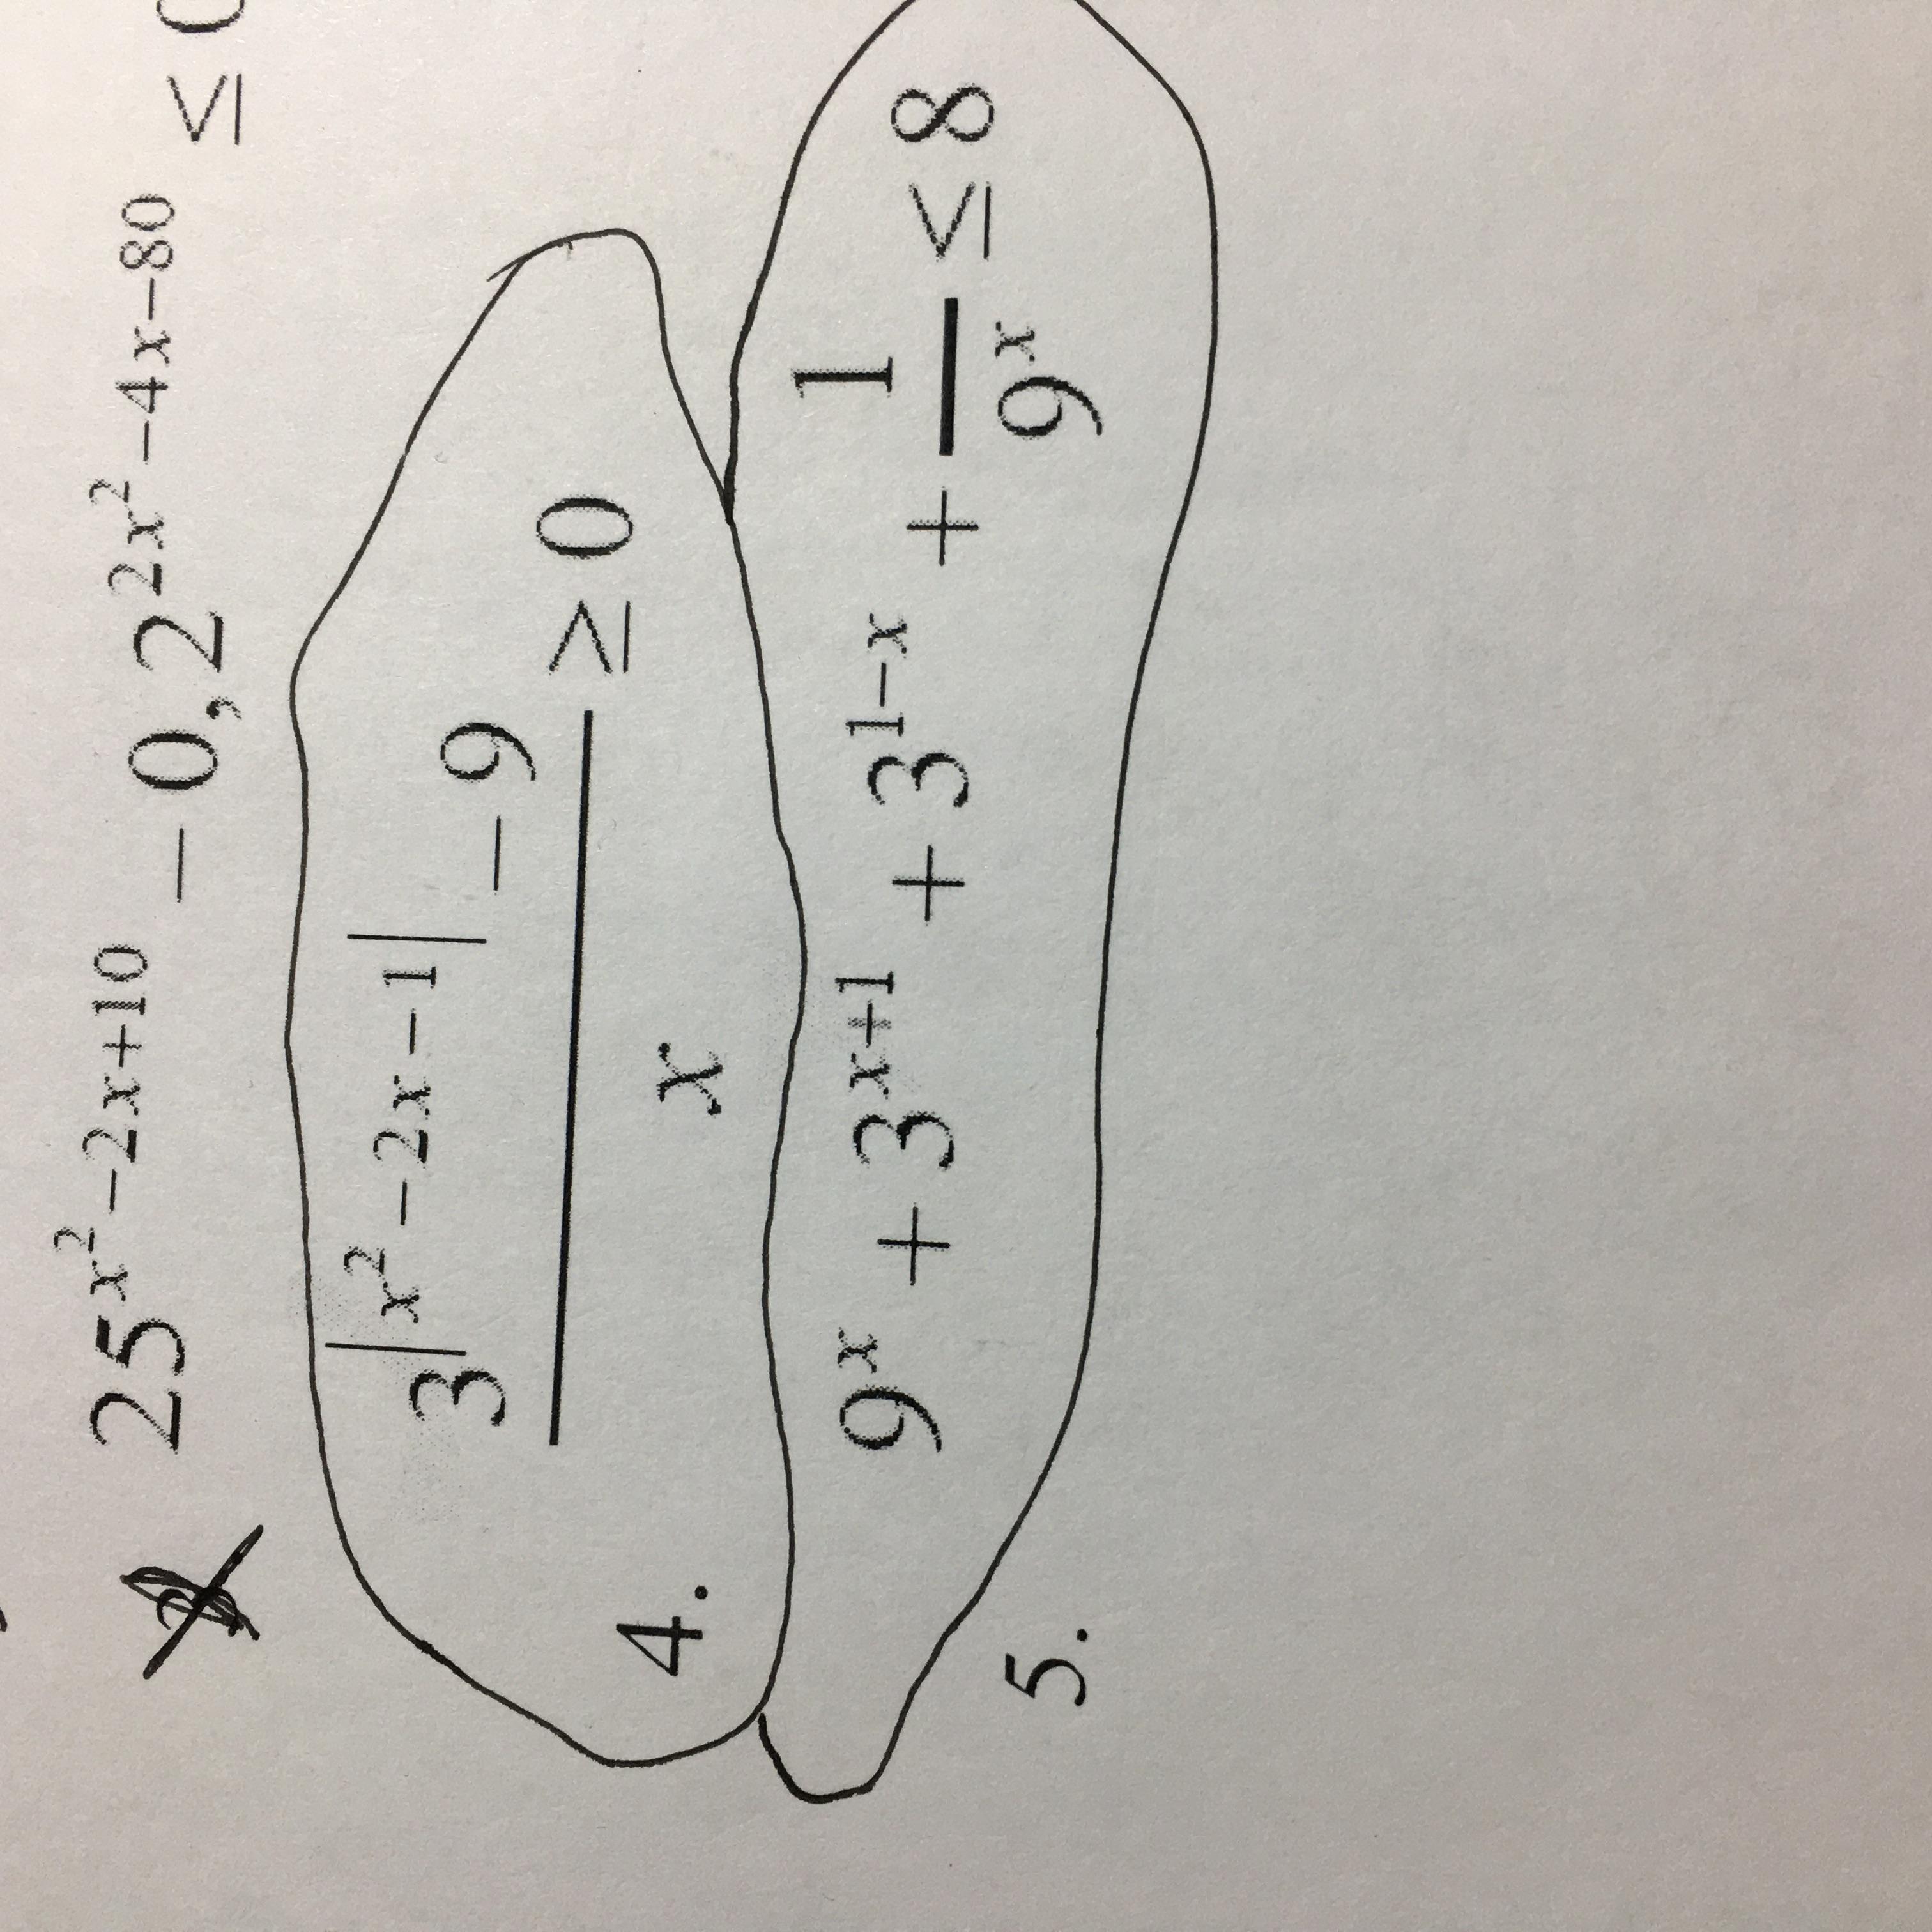 25^{x^2-2x+10} - 0,2^{2x^2-4x-80} ≤ 0
4. \frac{3^{|x^2-2x-1|} - 9}{x} ≥ 0
5. 9^x + 3^{x+1} + 3^{1-x} + \frac{1}{9^x} ≤ 8